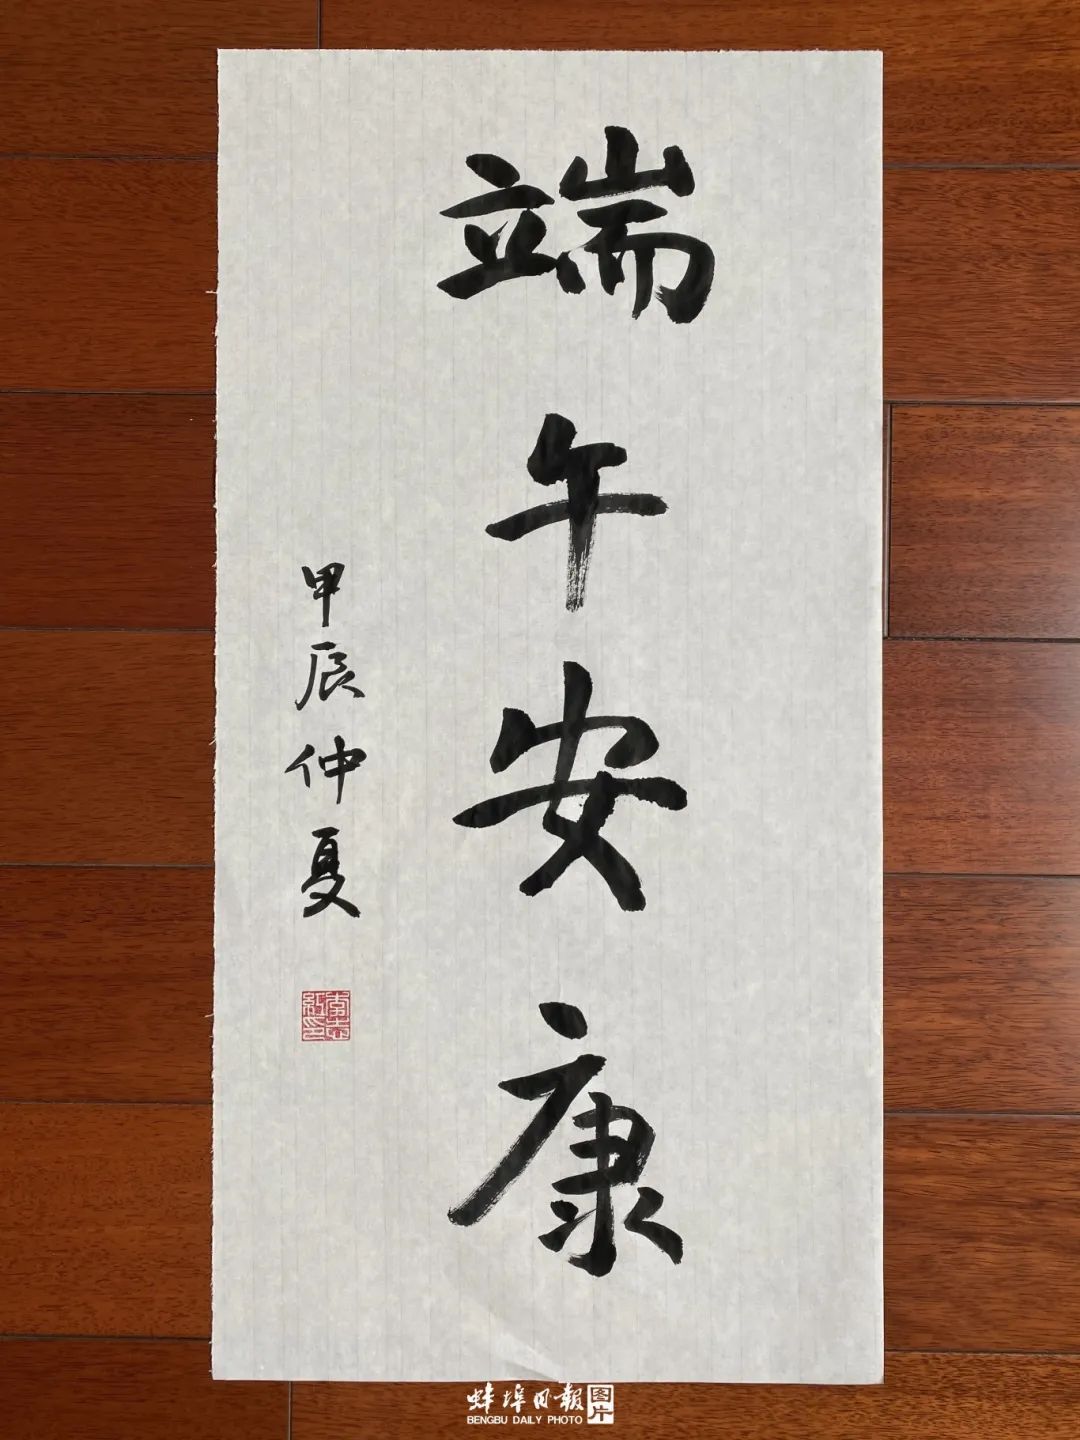 端午安康
甲辰仲夏
蚌埠日報 图片
BENGBU DAILY PHOTO